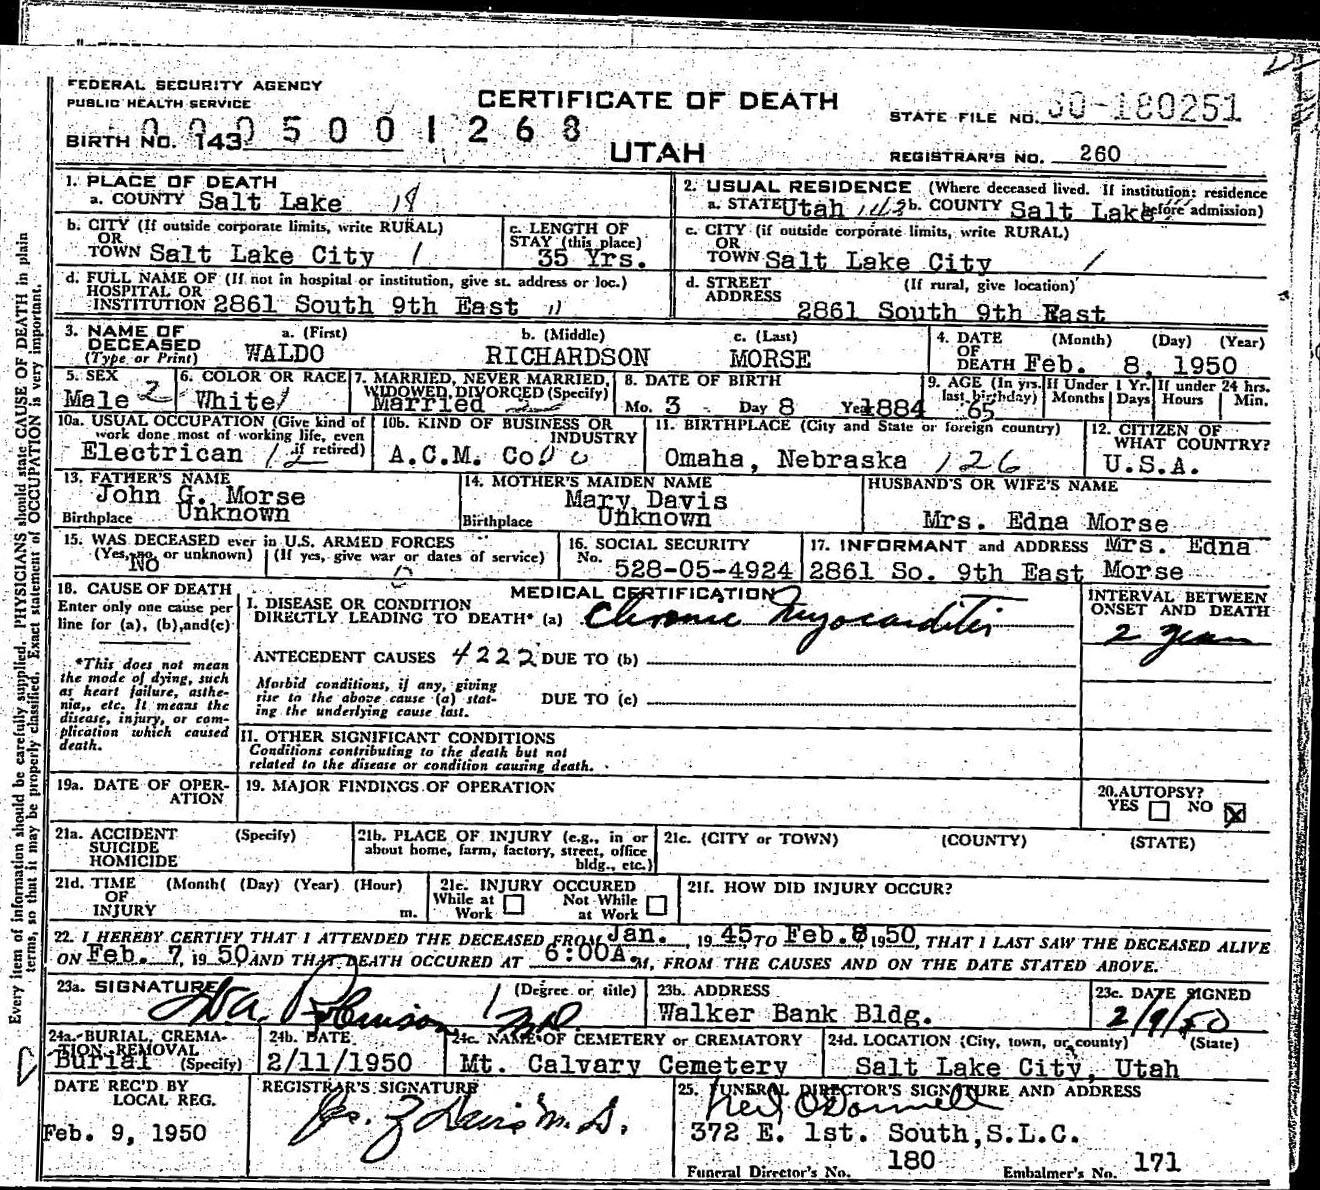 FEDERAL SECURITY AGENCY
PUBLIC HEALTH SERVICE
CERTIFICATE OF DEATH
STATE FILE NO. 50-180251
0005001268
BIRTH NO. 143
UTAH
REGISTRAR'S NO. 260
1. PLACE OF DEATH
a. COUNTY Salt Lake 18
2. USUAL RESIDENCE (Where deceased lived. If institution: residence before admission)
a. STATE Utah 143 b. COUNTY Salt Lake
b. CITY (If outside corporate limits, write RURAL)
OR
TOWN Salt Lake City 1
c. LENGTH OF
STAY (this place)
35 Yrs.
c. CITY (if outside corporate limits, write RURAL)
OR
TOWN Salt Lake City 1
d. FULL NAME OF (If not in hospital or institution, give st. address or loc.)
HOSPITAL OR
INSTITUTION 2861 South 9th East 11
d. STREET (If rural, give location)
ADDRESS
2861 South 9th East
3. NAME OF
DECEASED
(Type or Print)
a. (First)
WALDO
b. (Middle)
RICHARDSON
c. (Last)
MORSE
4. DATE (Month) (Day) (Year)
OF
DEATH Feb. 8, 1950
5. SEX
Male 2
6. COLOR OR RACE
White 1
7. MARRIED, NEVER MARRIED,
WIDOWED, DIVORCED (Specify)
Married
8. DATE OF BIRTH
Mo. 3 Day 8 Year 1884
9. AGE (In yrs.
last birthday)
65
If Under 1 Yr.
Months Days
If under 24 hrs.
Hours Min.
10a. USUAL OCCUPATION (Give kind of
work done most of working life, even
if retired)
Electrican 12
10b. KIND OF BUSINESS OR
INDUSTRY
A.C.M. Co.
11. BIRTHPLACE (City and State or foreign country)
Omaha, Nebraska 126
12. CITIZEN OF
WHAT COUNTRY?
U.S.A.
13. FATHER'S NAME
John G. Morse
Birthplace Unknown
14. MOTHER'S MAIDEN NAME
Mary Davis
Birthplace Unknown
HUSBAND'S OR WIFE'S NAME
Mrs. Edna Morse
15. WAS DECEASED ever in U.S. ARMED FORCES
(Yes, no, or unknown) (If yes, give war or dates of service)
No
16. SOCIAL SECURITY
No. 528-05-4924
17. INFORMANT and ADDRESS Mrs. Edna
2861 So. 9th East Morse
18. CAUSE OF DEATH
Enter only one cause per
line for (a), (b), and (c)
*This does not mean
the mode of dying, such
as heart failure, asthe-
nia,, etc. It means the
disease, injury, or com-
plication which caused
death.
MEDICAL CERTIFICATION
I. DISEASE OR CONDITION
DIRECTLY LEADING TO DEATH* (a) Chronic Myocarditis
ANTECEDENT CAUSES 4222 DUE TO (b)
Morbid conditions, if any, giving
rise to the above cause (a) stat-
ing the underlying cause last.
DUE TO (c)
II. OTHER SIGNIFICANT CONDITIONS
Conditions contributing to the death but not
related to the disease or condition causing death.
INTERVAL BETWEEN
ONSET AND DEATH
2 years
19a. DATE OF OPER-
ATION
19. MAJOR FINDINGS OF OPERATION
20. AUTOPSY?
YES NO X
21a. ACCIDENT (Specify)
SUICIDE
HOMICIDE
21b. PLACE OF INJURY (e.g., in or
about home, farm, factory, street, office
bldg., etc.)
21c. (CITY or TOWN) (COUNTY) (STATE)
21d. TIME (Month( (Day) (Year) (Hour)
OF
INJURY m.
21e. INJURY OCCURED
While at Work Not While at Work
21f. HOW DID INJURY OCCUR?
22. I HEREBY CERTIFY THAT I ATTENDED THE DECEASED FROM Jan. , 19 45 TO Feb. 8 1950, THAT I LAST SAW THE DECEASED ALIVE
ON Feb. 7, 1950 AND THAT DEATH OCCURED AT 6:00A. M, FROM THE CAUSES AND ON THE DATE STATED ABOVE.
23a. SIGNATURE (Degree or title)
Robinson M.D.
23b. ADDRESS
Walker Bank Bldg.
23c. DATE SIGNED
2/9/50
24a. BURIAL, CREMA-
TION, REMOVAL
Burial (Specify)
24b. DATE
2/11/1950
24c. NAME OF CEMETERY or CREMATORY
Mt. Calvary Cemetery
24d. LOCATION (City, town, or county) (State)
Salt Lake City, Utah
DATE REC'D BY
LOCAL REG.
Feb. 9, 1950
REGISTRAR'S SIGNATURE
25. FUNERAL DIRECTOR'S SIGNATURE AND ADDRESS
Neil O'Donnell
372 E. 1st. South, S.L.C.
Funeral Director's No. 180 Embalmer's No. 171
Every item of information should be carefully supplied. PHYSICIANS should state CAUSE OF DEATH in plain
terms, so that it may be properly classified. Exact statement of OCCUPATION is very important.